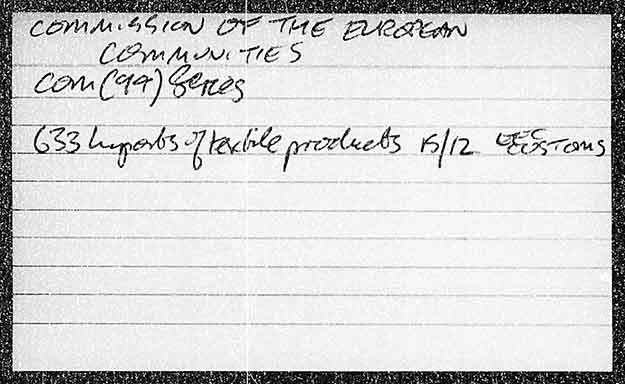 COMMISSION OF THE EUROPEAN
COMMUNITIES
COM(99) Series
633 Imports of textile products 15/12 EEC CUSTOMS